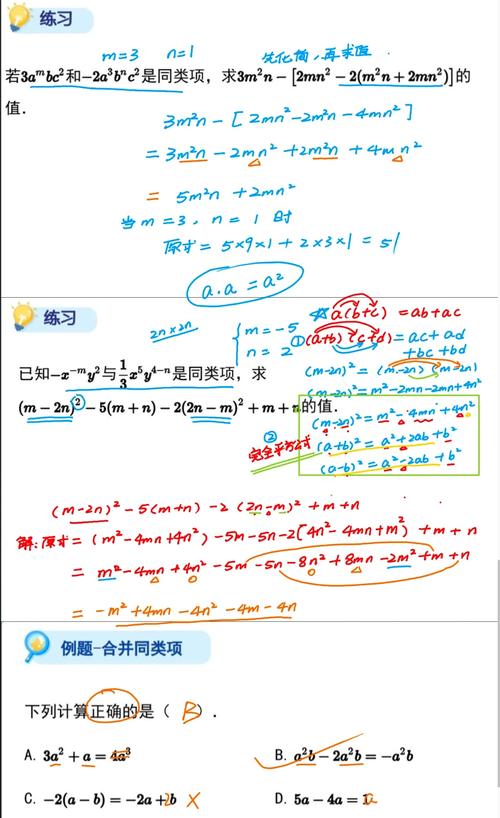 练习
m=3 n=1 先化简,再求值
若3aᵐbc²和-2a³bⁿc²是同类项，求3m²n-[2mn²-2(m²n+2mn²)]的
值.
3m²n-[2mn²-2m²n-4mn²]
=3m²n-2mn²+2m²n+4mn²
=5m²n+2mn²
当m=3,n=1时
原式=5×9×1+2×3×1=51
a.a=a²
练习
☆a(b+c)=ab+ac
2n×2n
{m=-5
n=2
①(a+b)(c+d)=ac+ad
+bc+bd
已知-x⁻ᵐy²与1/3x⁵y⁴⁻ⁿ是同类项，求
(m-2n)²=(m-2n)(m-2n)
(m-2n)²=m²-2mn-2mn+4n²
(m-2n)²-5(m+n)-2(2n-m)²+m+n的值.
(m-2n)²=m²-4mn+4n²
②
完全平方公式
(a+b)²=a²+2ab+b²
(a-b)²=a²-2ab+b²
(m-2n)²-5(m+n)-2(2n-m)²+m+n
解:原式=(m²-4mn+4n²)-5m-5n-2[4n²-4mn+m²]+m+n
=m²-4mn+4n²-5m-5n-8n²+8mn-2m²+m+n
=-m²+4mn-4n²-4m-4n
例题-合并同类项
下列计算正确的是（B）.
A. 3a²+a=4a³
B. a²b-2a²b=-a²b
C. -2(a-b)=-2a+2b ×
D. 5a-4a=1a